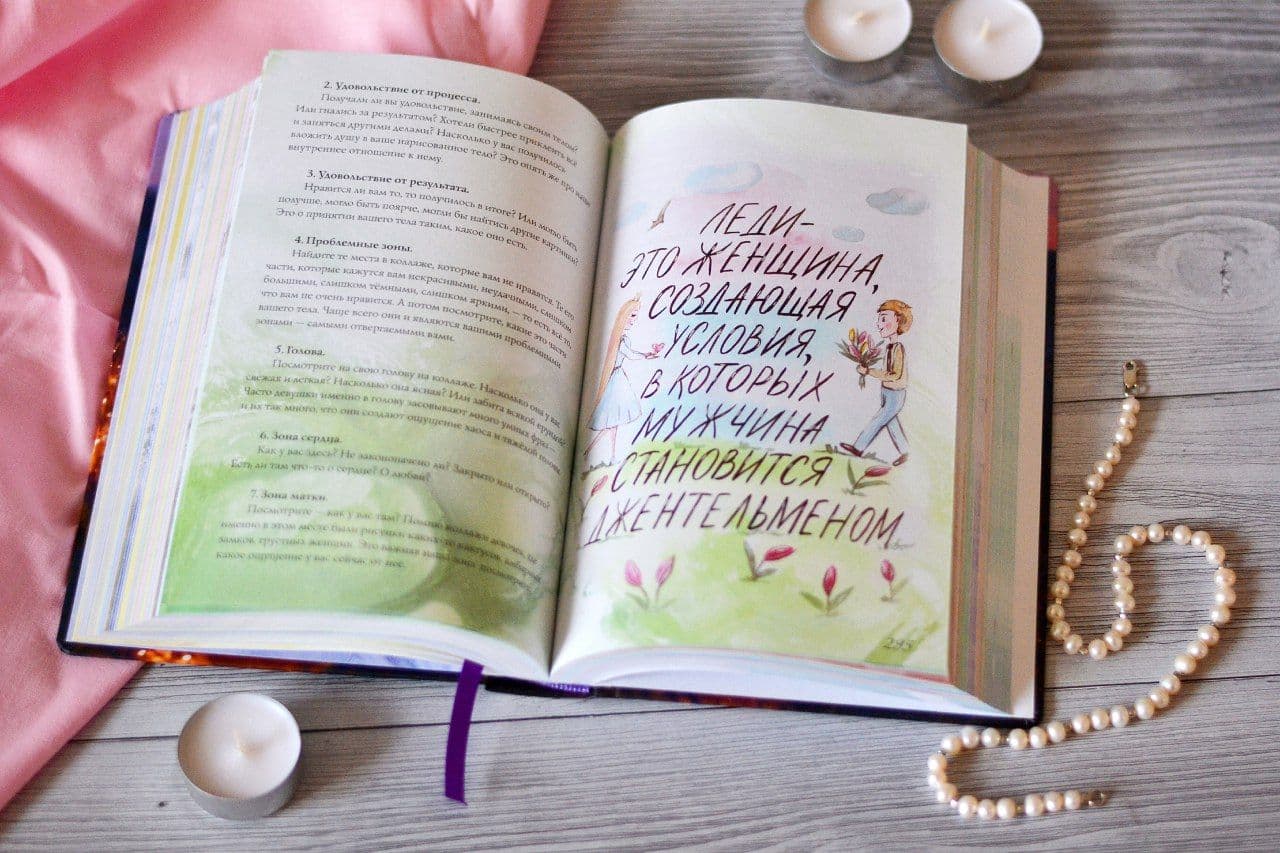 2. Удовольствие от процесса.
Получали ли вы удовольствие, занимаясь своим телом?
Или гнались за результатом? Хотели быстрее приклеить всё
и заняться другими делами? Насколько у вас получилось
вложить душу в ваше нарисованное тело? Это опять же про ваше
внутреннее отношение к нему.
3. Удовольствие от результата.
Нравится ли вам то, то получилось в итоге? Или могло быть
получше, могло быть поярче, могли бы найтись другие картинки?
Это о принятии вашего тела таким, какое оно есть.
4. Проблемные зоны.
Найдите те места в коллаже, которые вам не нравятся. Те его
части, которые кажутся вам некрасивыми, неудачными, слишком
большими, слишком тёмными, слишком яркими, — то есть всё то,
что вам не очень нравится. А потом посмотрите, какие это части
вашего тела. Чаще всего они и являются вашими проблемными
зонами — самыми отвергаемыми вами.
5. Голова.
Посмотрите на свою голову на коллаже. Насколько она у вас
свежая и легкая? Насколько она ясная? Или забита всякой ерундой?
Часто девушки именно в голову засовывают много умных фраз —
и их так много, что они создают ощущение хаоса и тяжёлой головы.
6. Зона сердца.
Как у вас здесь? Не законопачено ли? Закрыто или открыто?
Есть ли там что-то о сердце? О любви?
7. Зона матки.
Посмотрите — как у вас там? Помню коллажи девочек, где
именно в этом месте были рисунки каких-то кактусов,
замков, грустных женщин. Это важная
какое ощущение у вас сейчас от нее.
ЛЕДИ-
ЭТО ЖЕНЩИНА,
СОЗДАЮЩАЯ
УСЛОВИЯ,
В КОТОРЫХ
МУЖЧИНА
СТАНОВИТСЯ
ДЖЕНТЕЛЬМЕНОМ
295